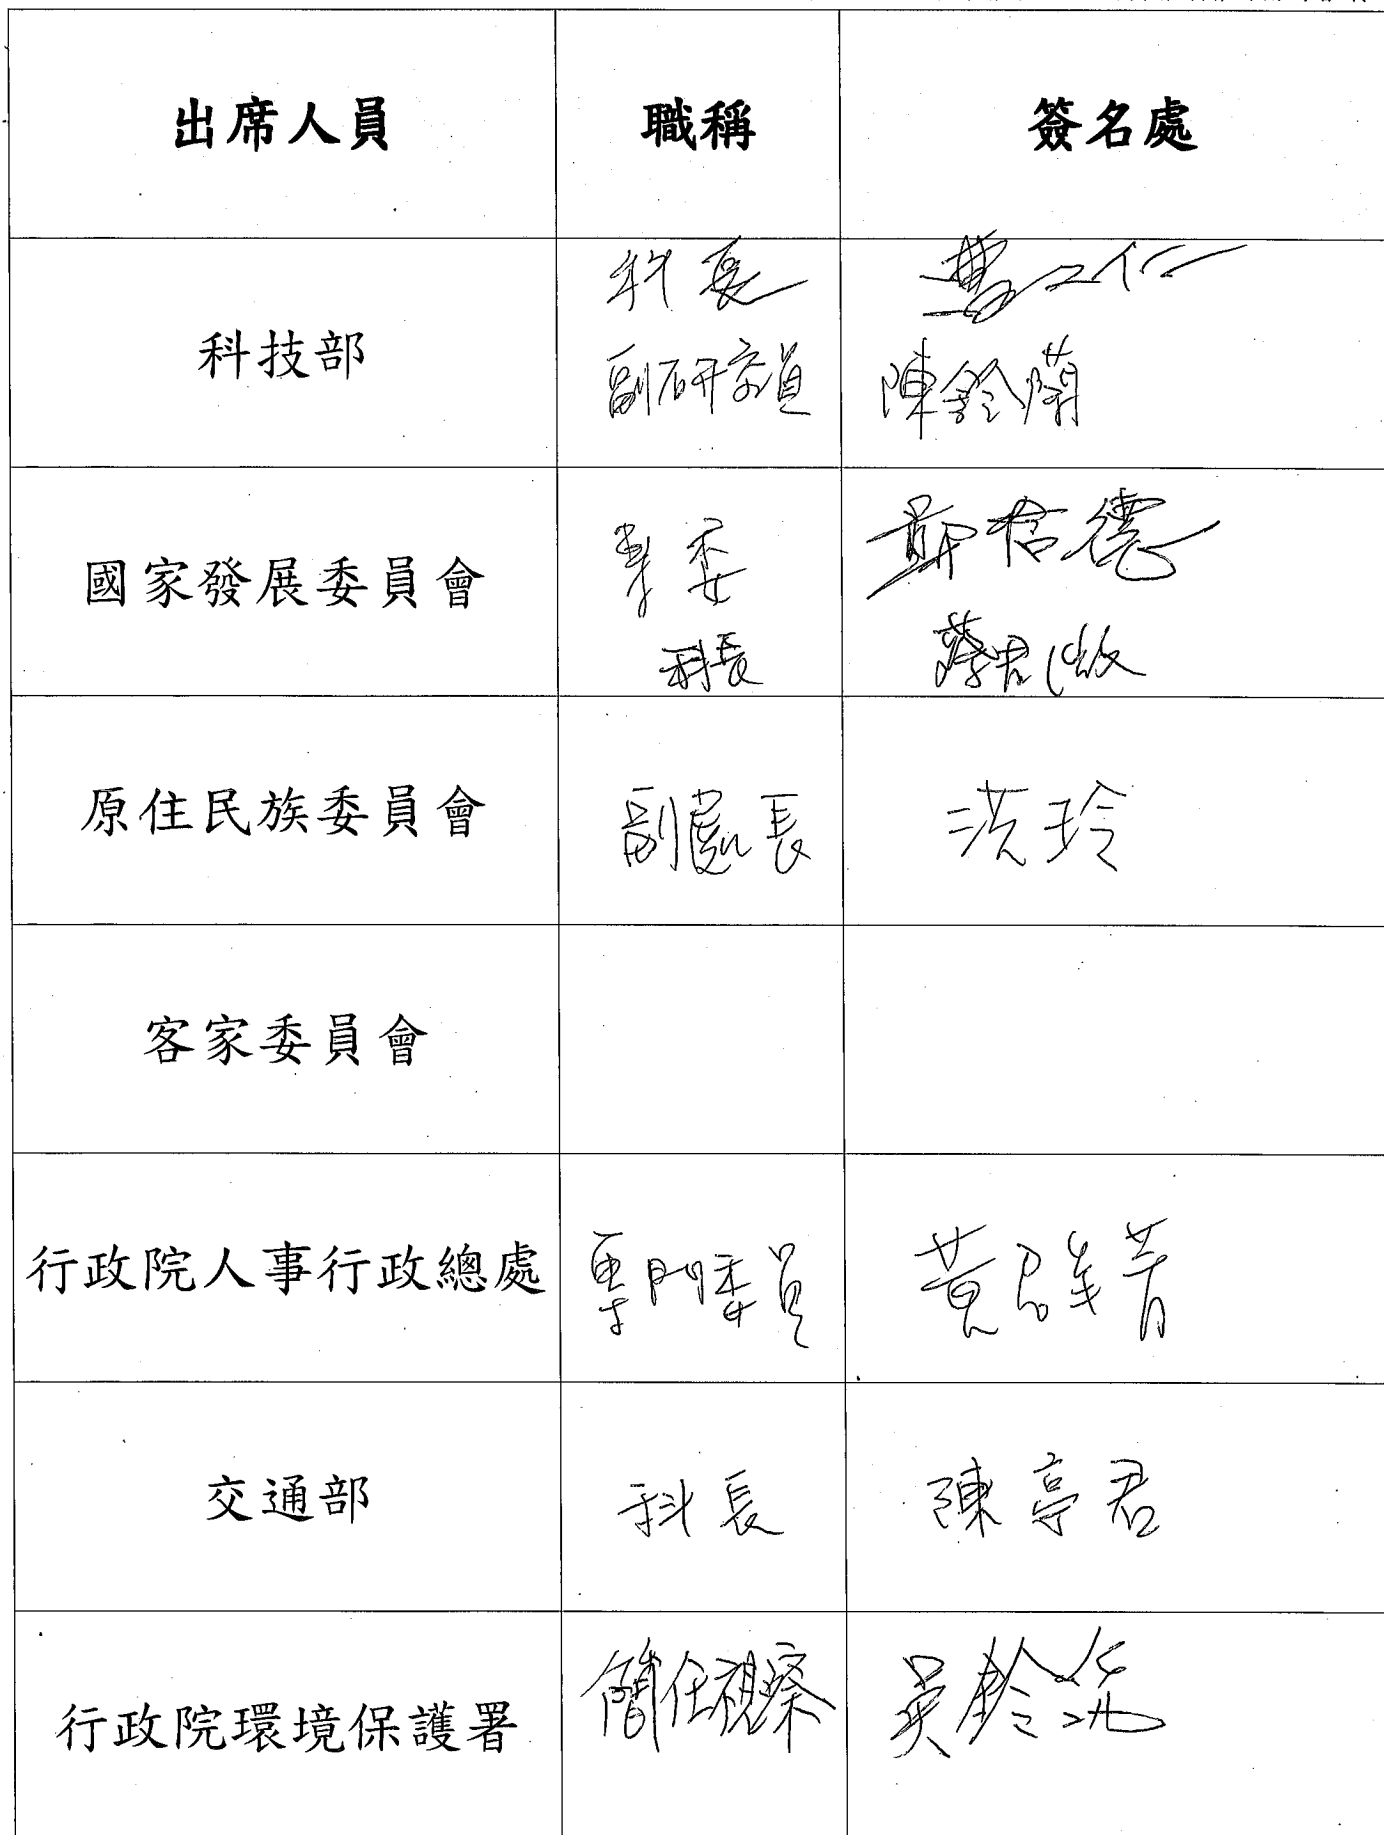 出席人員 職稱 簽名處
科技部 科長
副研究員 陳鈴蘭
國家發展委員會 專委
科長
原住民族委員會 副處長 洪玲
客家委員會
行政院人事行政總處 專門委員 黃群菁
交通部 科長 陳亭君
行政院環境保護署 簡任視察 吳鈴